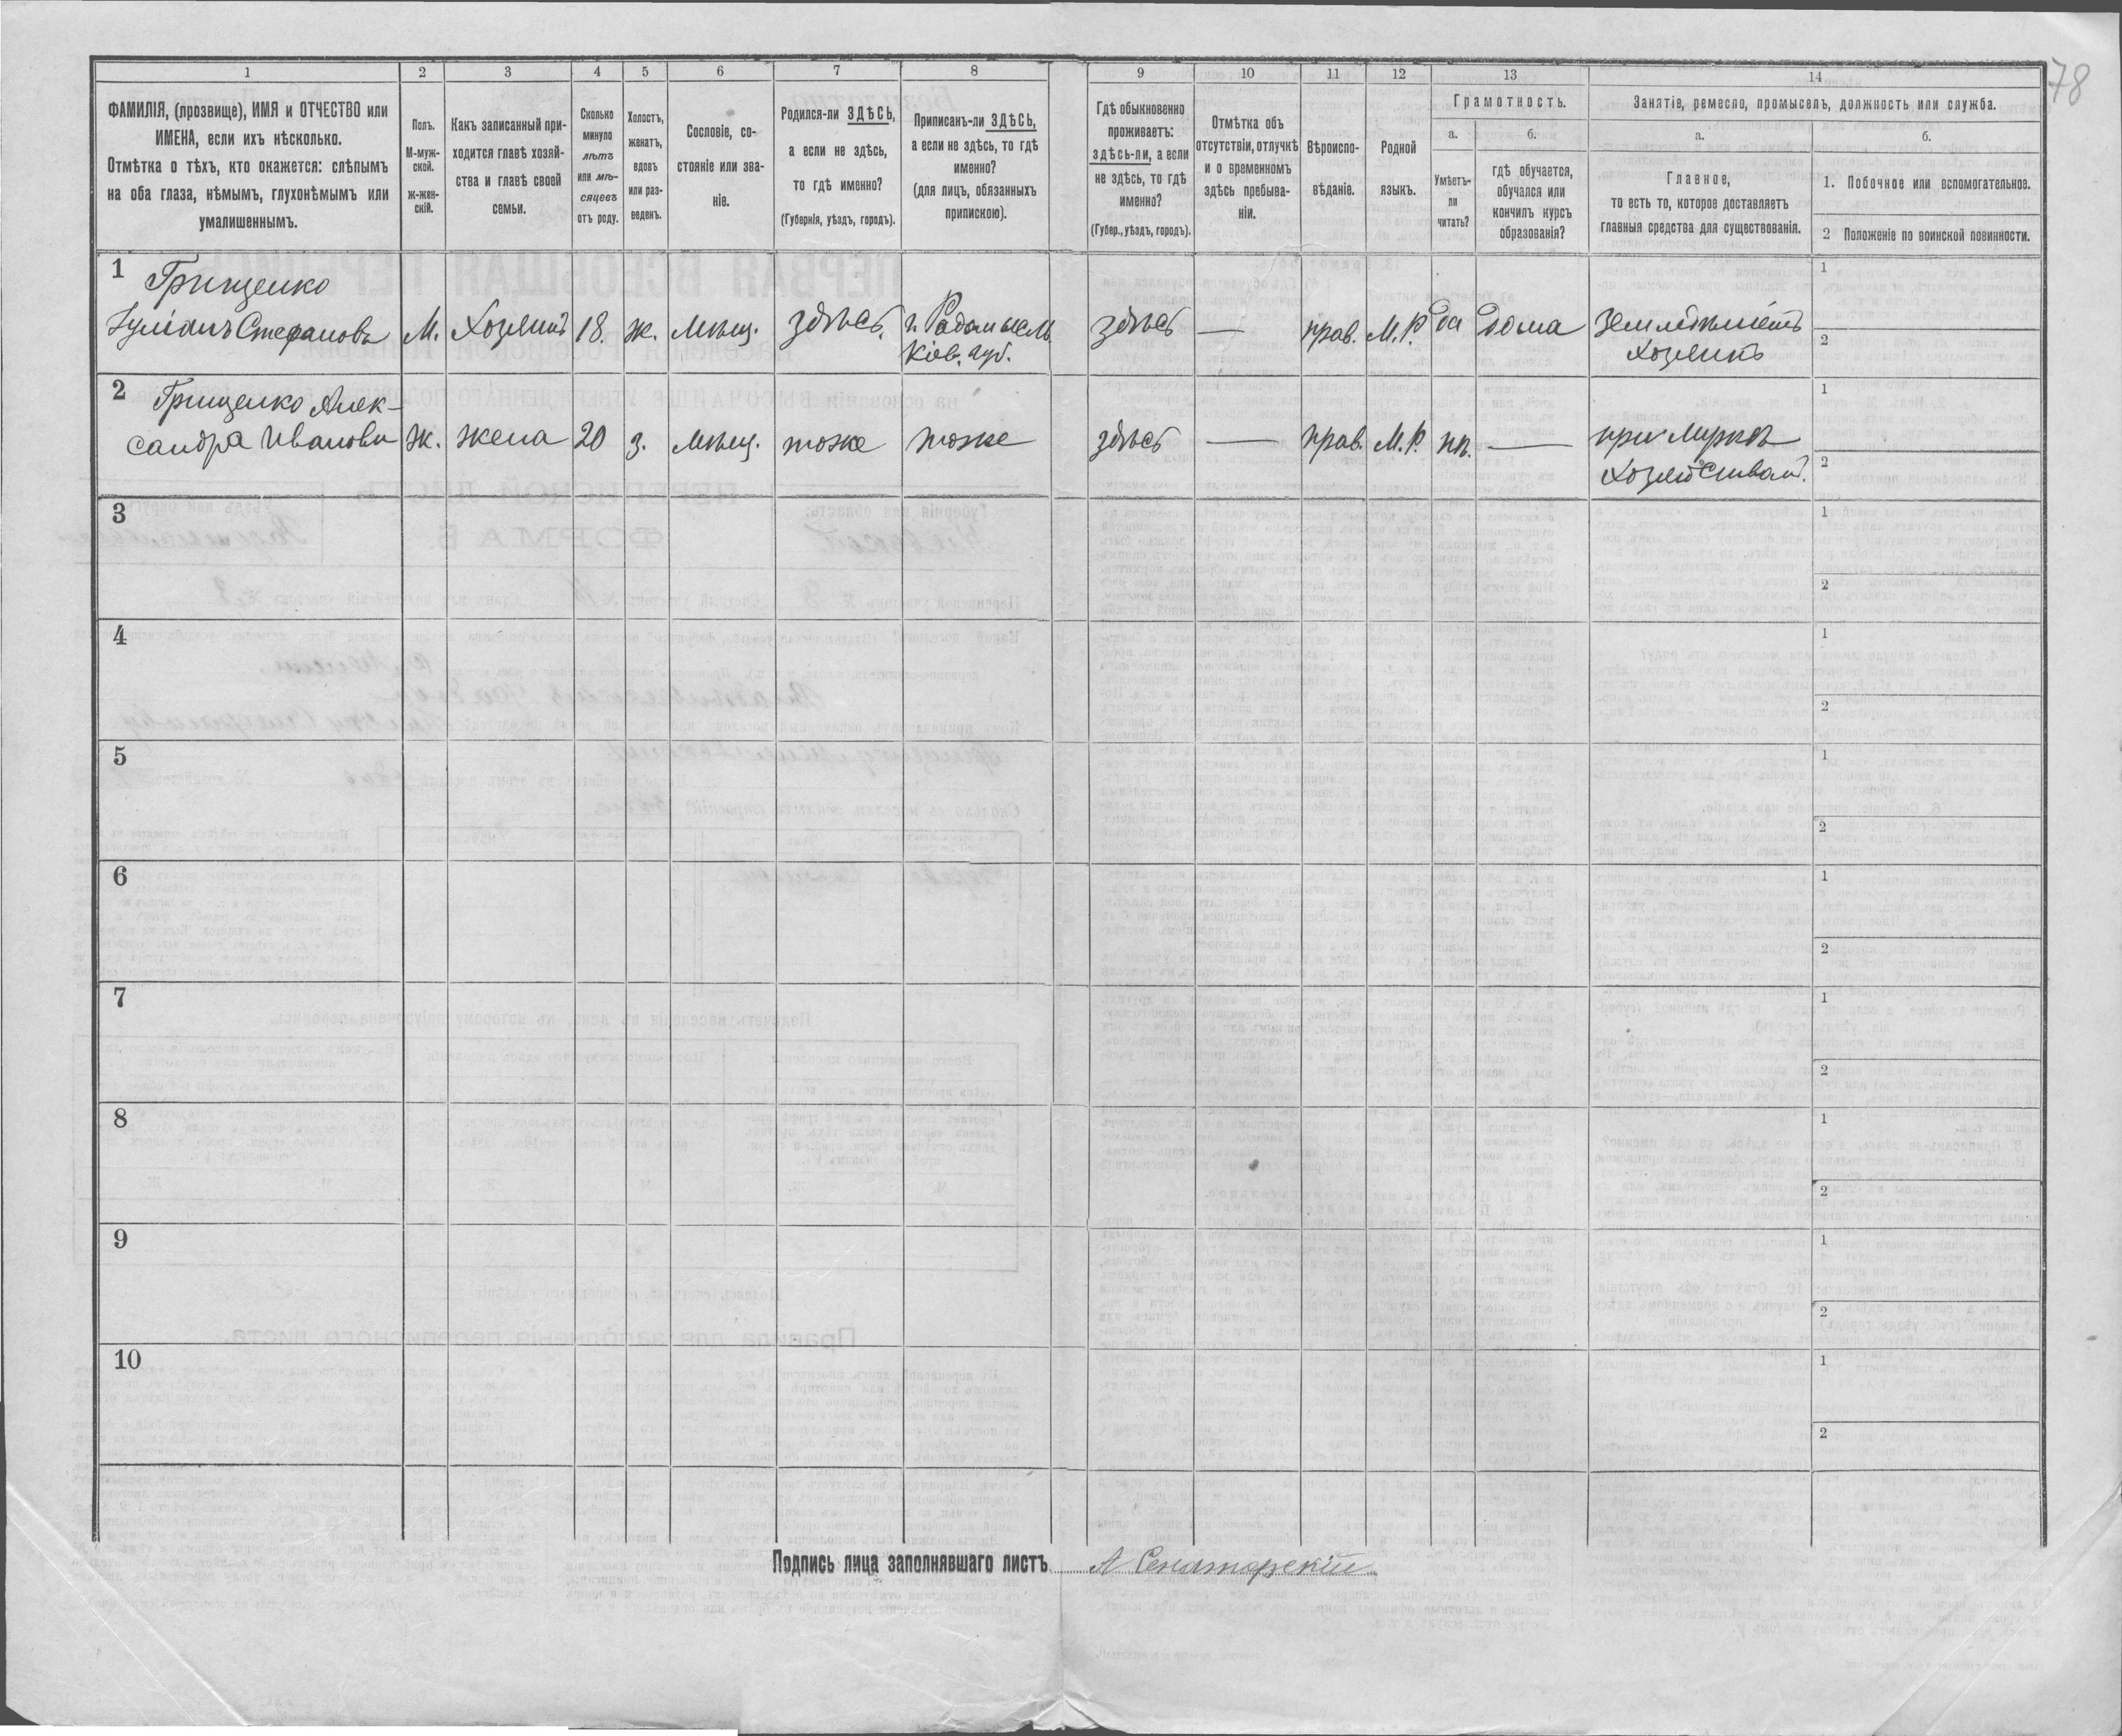 78
1 2 3 4 5 6 7 8 9 10 11 12 13 14
ФАМИЛІЯ, (прозвище), ИМЯ и ОТЧЕСТВО или
ИМЕНА, если ихъ нѣсколько.
Отмѣтка о тѣхъ, кто окажется: слѣпымъ
на оба глаза, нѣмымъ, глухонѣмымъ или
умалишеннымъ.
Полъ.
М-муж-
ской.
ж-жен-
скій.
Какъ записанный при-
ходится главѣ хозяй-
ства и главѣ своей
семьи.
Сколько
минуло
лѣтъ
или мѣ-
сяцевъ
отъ роду.
Холостъ,
женатъ,
вдовъ
или раз-
веденъ.
Сословіе, со-
стояніе или зва-
ніе.
Родился-ли ЗДѢСЬ,
а если не здѣсь,
то гдѣ именно?
(Губернія, уѣздъ, городъ).
Приписанъ-ли ЗДѢСЬ,
а если не здѣсь, то гдѣ
именно?
(для лицъ, обязанныхъ
припискою).
Гдѣ обыкновенно
проживаетъ:
здѣсь-ли, а если
не здѣсь, то гдѣ
именно?
(Губер., уѣздъ, городъ).
Отмѣтка объ
отсутствіи, отлучкѣ
и о временномъ
здѣсь пребыва-
ніи.
Вѣроиспо-
вѣданіе.
Родной
языкъ.
Грамотность.
а.
Умѣетъ-
ли
читать?
б.
гдѣ обучается,
обучался или
кончилъ курсъ
образованія?
Занятіе, ремесло, промыселъ, должность или служба.
а.
Главное,
то есть то, которое доставляетъ
главныя средства для существованія.
б.
1. Побочное или вспомогательное.
2 Положеніе по воинской повинности.
1 Грищенко
Іуліанъ Стефановъ М. Хозяинъ 18. ж. Мѣщ. здѣсь. г. Радомысль
Кіев. губ.
здѣсь — прав. М.Р. да дома Земледѣлецъ
хозяинъ
1
2
2 Грищенко Алек-
сандра Иванова Ж. жена 20 з. Мѣщ. тоже тоже
здѣсь — прав. М.Р. нѣ. — при мужѣ
хозяйствен.
1
2
3
1
2
4
1
2
5
1
2
6
1
2
7
1
2
8
1
2
9
1
2
10
1
2
Подпись лица заполнявшаго листъ А Сенаторскій